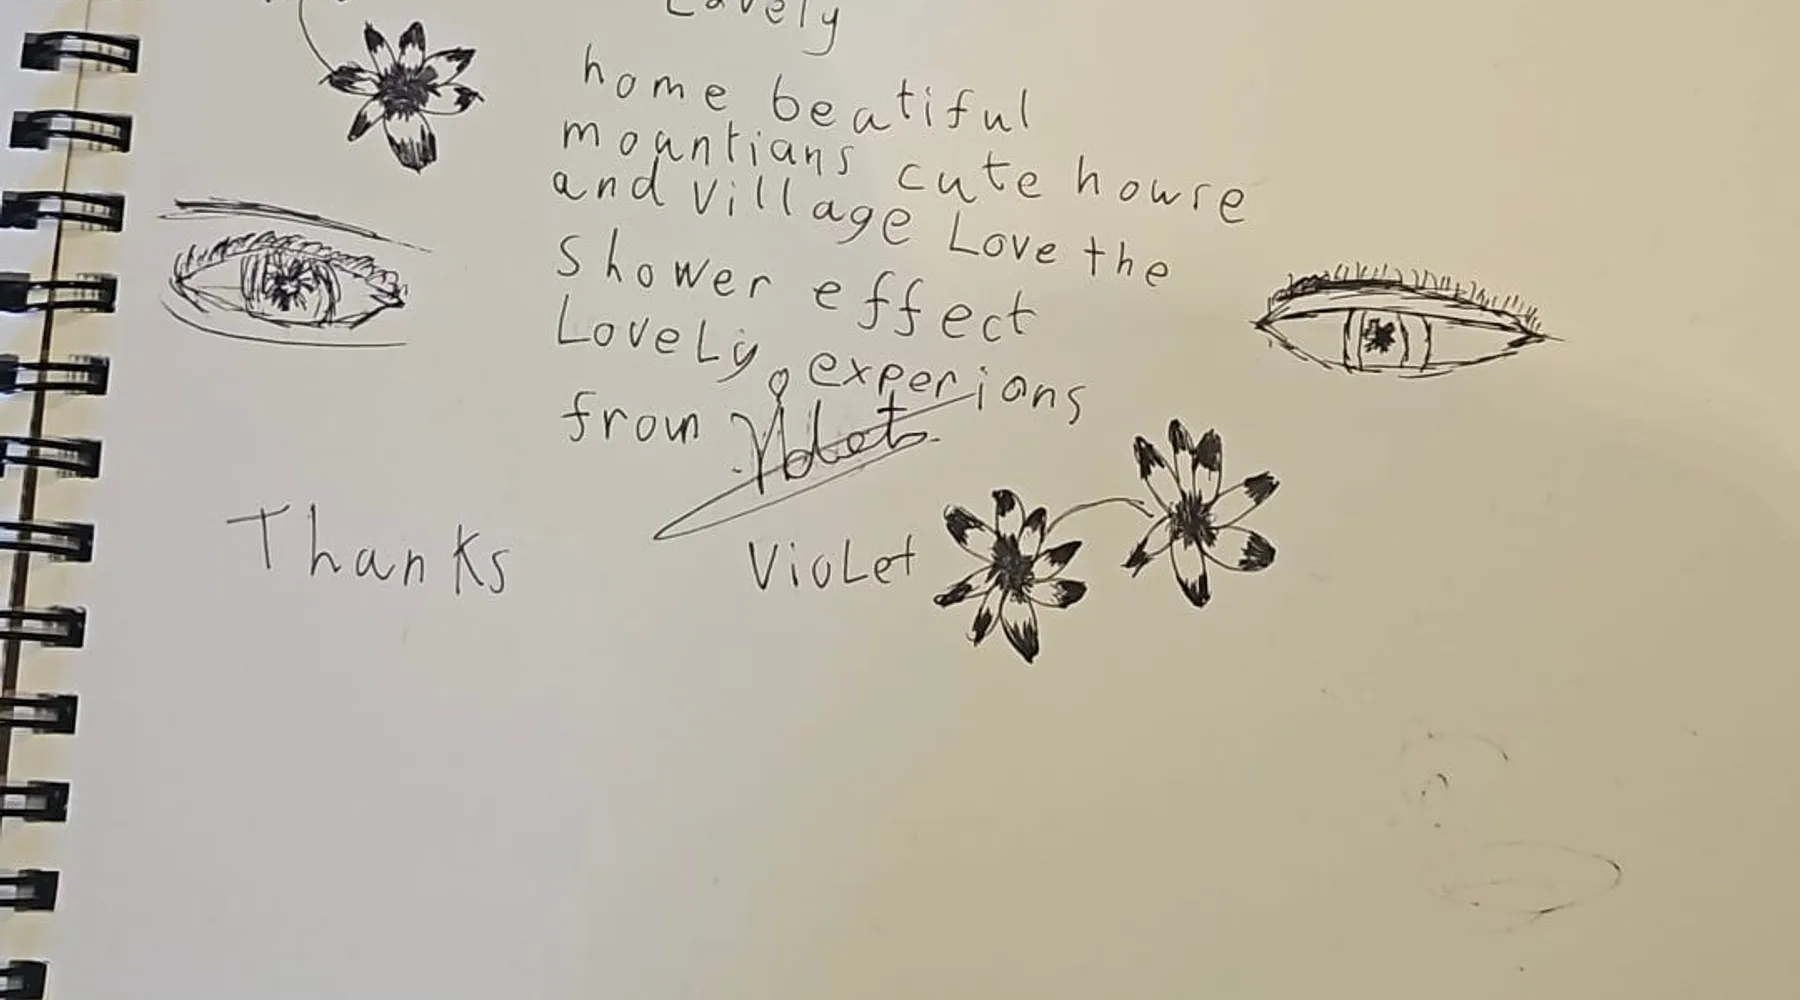 Lovely
home beatiful
mountians cute howse
and village Love the
shower effect
Lovely experians
from Violet
Thanks Violet